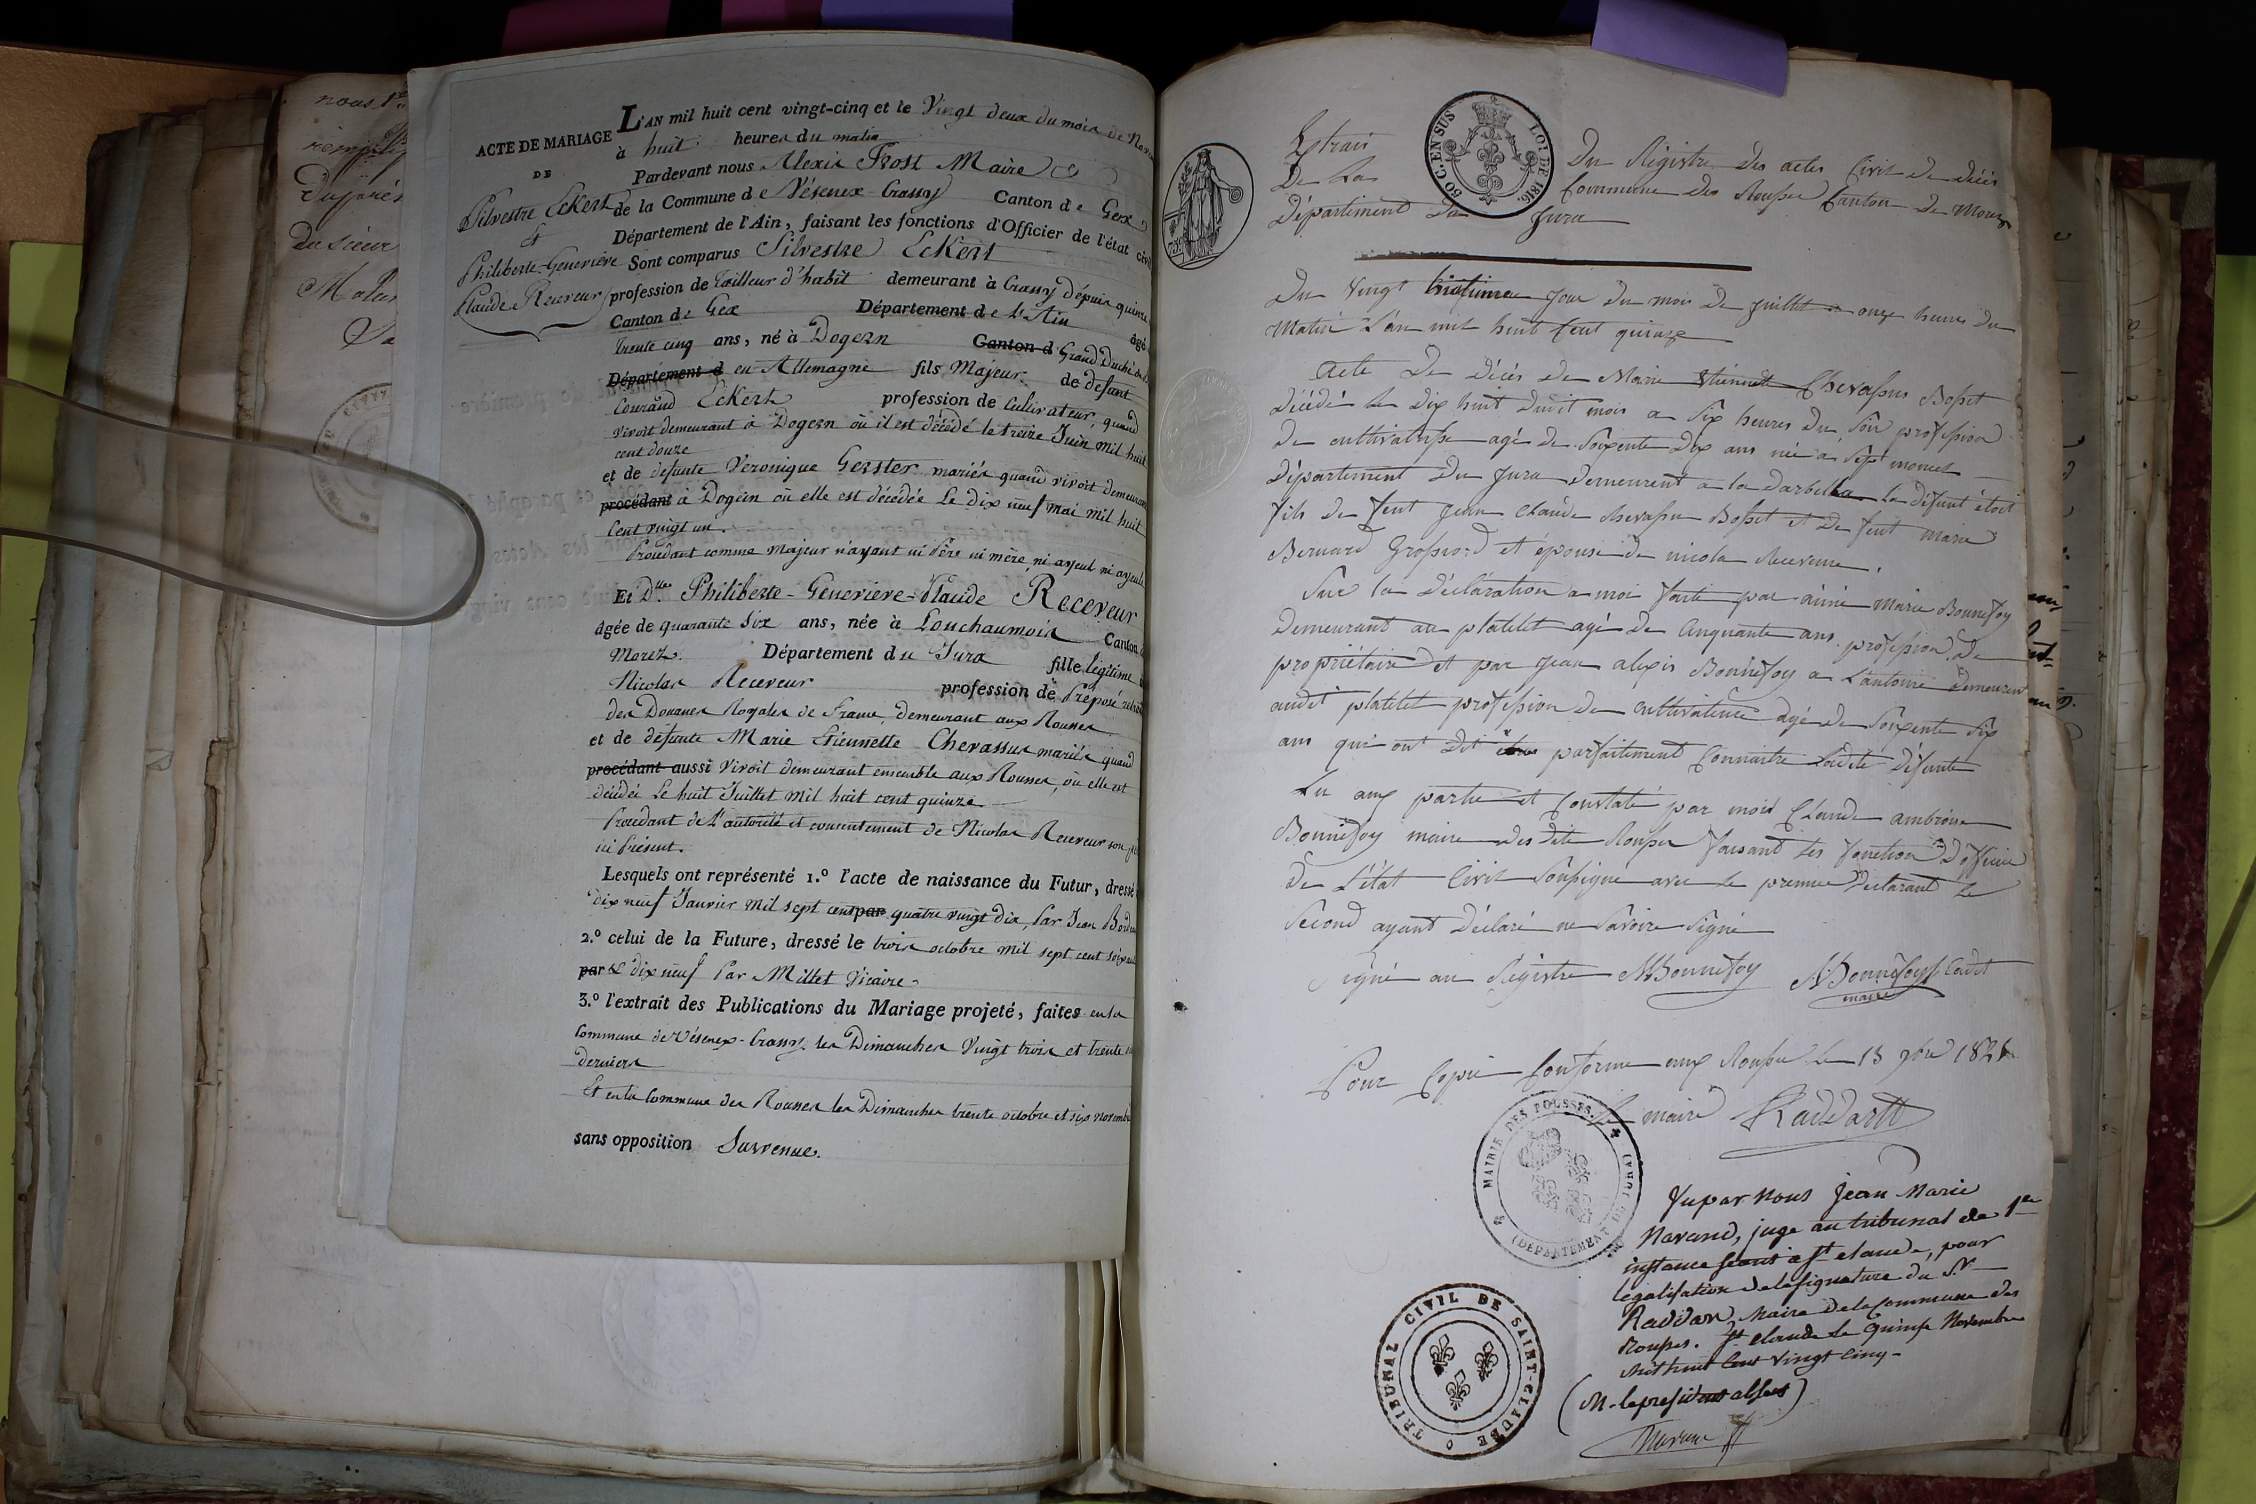 nous
Du sieur
ACTE DE MARIAGE
DE
Silvestre Eckert
Et
Philiberte-Genevieve
Claude Receveur
L'AN mil huit cent vingt-cinq et le Vingt deux du mois de Nov
à huit heures du matin
Pardevant nous Alexis Frost Maire
de la Commune de Vésenex-Crassy Canton de Gex
Département de l'Ain, faisant les fonctions d'Officier de l'état civil
Sont comparus Silvestre Eckert
profession de Tailleur d'habit demeurant à Crassy depuis quinze
Canton de Gex Département de L'Ain âgé
trente cinq ans, né à Dogern Canton d Grand Duché
Département d en Allemagne fils Majeur de defunt
Conrand Eckert profession de Cultivateur, quand
vivoit demeurant à Dogern où il est décédé le treize Juin mil huit
cent douze
et de defunte Veronique Gerster mariés quand vivoit demeurant
procédant à Dogern où elle est décédée Le dix neuf mai mil huit
cent vingt un.
Procédant comme Majeur n'ayant ni Père ni mère, ni ayeul ni ayeule
Et Dlle Philiberte-Genevieve-Claude Receveur
âgée de quarante Six ans, née à Lonchaumois Canton
Morez. Département du Jura fille légitime
Nicolas Receveur profession de Préposé
des Douanes Royales de France, demeurant aux Rousses
et de defunte Marie Etiennette Chevassus mariés quand
procédant aussi Vivoit demeurant ensemble aux Rousses, où elle est
décédée Le huit Juillet mil huit cent quinze
Procédant de L'autorité et consentement de Nicolas Receveur son
ici Présent.
Lesquels ont représenté 1.º l'acte de naissance du Futur, dressé
dix neuf Janvier mil sept cent par quatre vingt dix, Par Jean
2.º celui de la Future, dressé le trois octobre mil sept cent soixante
par & dix neuf Par Millet Vicaire
3.º l'extrait des Publications du Mariage projeté, faites en la
Commune de Vésenex-Crassy les Dimanches Vingt trois et trente
derniers
Et en la Commune des Rousses les Dimanches trente octobre et six novembre
sans opposition Survenue.
50 C. EN SUS
LOI DE 1816
Extrait Du Régistre des actes Civil de décès
De La Commune des Rousses Canton de Morez
Département du Jura
Du Vingt huitieme Jour Du mois De Juillet a onze heures du
Matin L'an mil huit Cent quinze
Acte De Décès De Marie Etiennette Chevassus Bosset
Décédé Le Dix huit Dudit mois a Six heures Du Soir profession
De cultivatrisse agé De Soixente Dix ans née a Sept moncel
Département Du Jura Demeurent a la Darbella La Défunt étoit
fils De feut Jean Claude Chevassu Bosset et De feut Marie
Bernard Grosjord et épouse de nicola Receveur.
Sur la Déclaration a moi faite par aimé Marie Bonnefoy
Demeurant au platelet agé De Cinquante ans profession De
propriétaire et par Jean alexis Bonnefoy a Lantoine Demeurent
audit platelet profession De cultivateur agé de Soixente Six
ans qui ont Dit parfaitement Connaitre Ladite Défunte
Lu aux partie et Constaté par mois Claude ambroise
Bonnefoy maire des dite Rousses faisant les fonction D'officier
De L'état Civil Soussigné avec Le premier Déclarant le
Second ayant Déclaré ne Savoire Signé
Signé au Régistre MBonnefoy ABonnefoy Cadet
maire
Pour Copie Conforme aux Rousses Le 13 9bre 1825
Le maire Raddaz
MAIRIE DES ROUSSES.
(DÉPARTEMENT DU JURA)
Vu par Nous Jean Marie
Navand, juge au tribunal de 1re
instance séant à St claude, pour
légalisation de la signature du Sr
Raddaz, Maire de la Commune des
Rousses. St claude le quinze Novembre
mil huit Cent Vingt Cinq
(M. le president absent)
TRIBUNAL CIVIL DE SAINT-CLAUDE